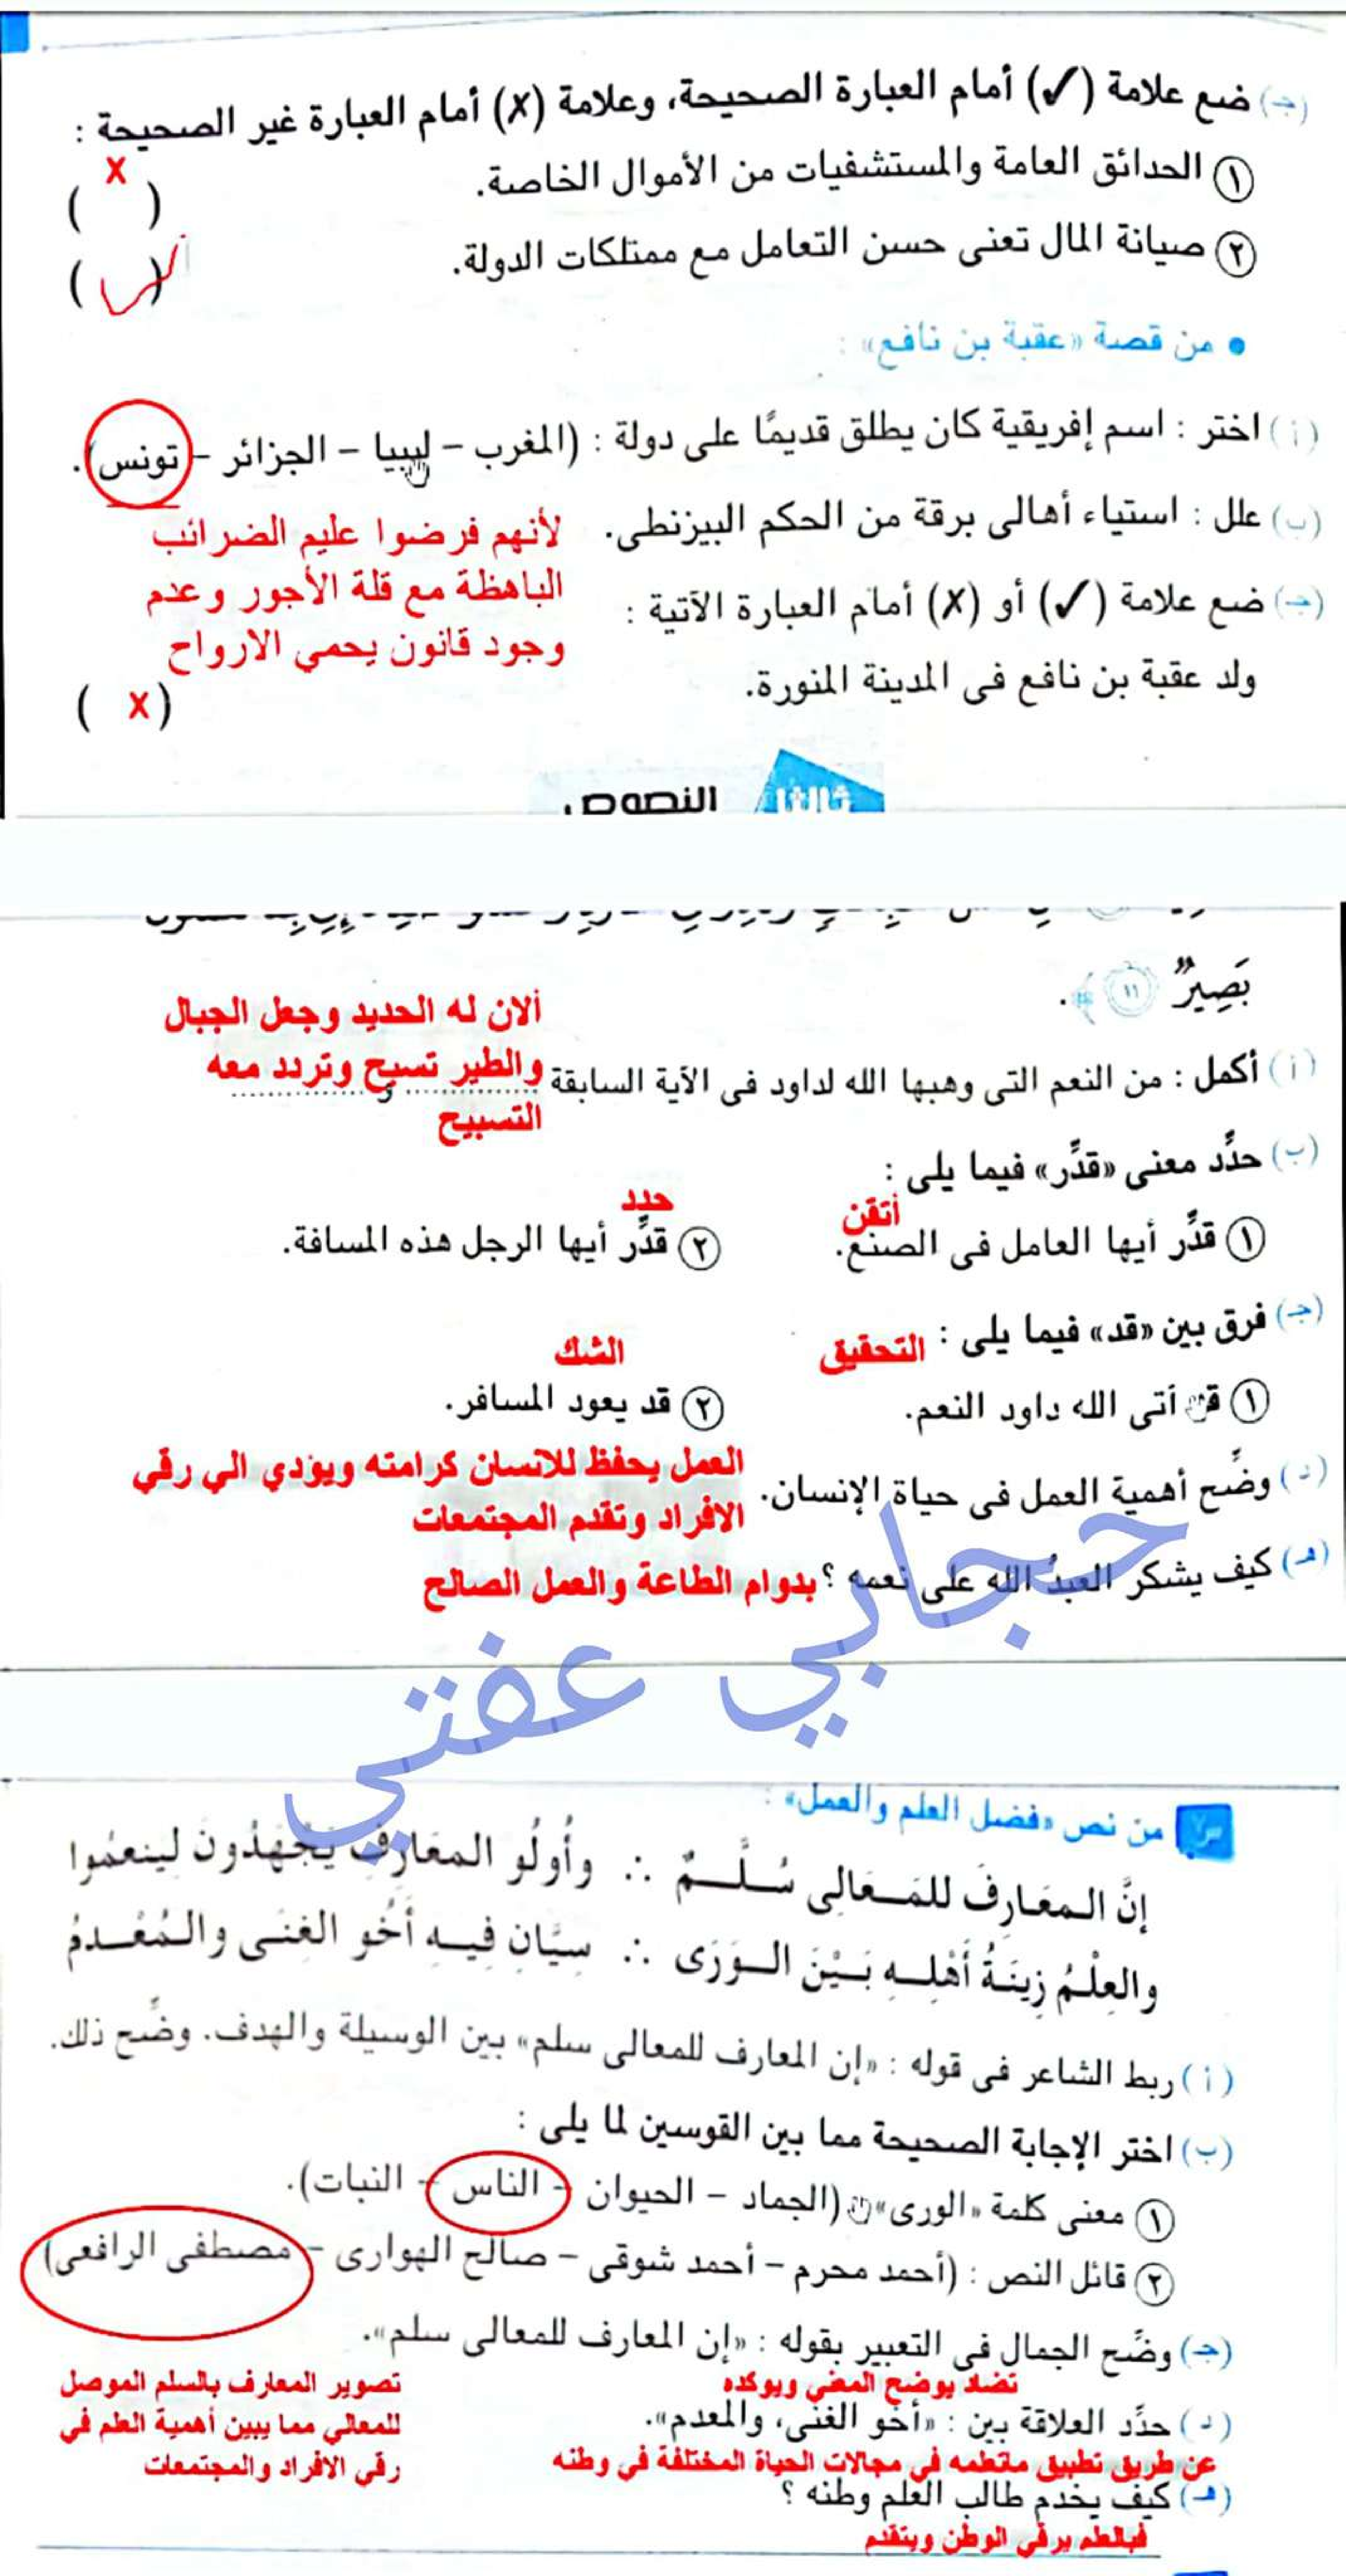 (جـ) ضع علامة (✓) أمام العبارة الصحيحة، وعلامة (✗) أمام العبارة غير الصحيحة :
① الحدائق العامة والمستشفيات من الأموال الخاصة. ( x )
② صيانة المال تعنى حسن التعامل مع ممتلكات الدولة. ( ✓ )
• من قصة «عقبة بن نافع» :
(أ) اختر : اسم إفريقية كان يطلق قديمًا على دولة : (المغرب - ليبيا - الجزائر - تونس).
(ب) علل : استياء أهالى برقة من الحكم البيزنطى.
لأنهم فرضوا عليم الضرائب
الباهظة مع قلة الأجور وعدم
وجود قانون يحمي الارواح
(جـ) ضع علامة (✓) أو (✗) أمام العبارة الآتية :
ولد عقبة بن نافع فى المدينة المنورة. ( x )
ثالثا النصوص
بَصِيرٌ ١١ .
(أ) أكمل : من النعم التى وهبها الله لداود فى الآية السابقة ............ و ............
ألان له الحديد وجعل الجبال
والطير تسبح وتردد معه
التسبيح
(ب) حدِّد معنى «قدِّر» فيما يلى :
① قدِّر أيها العامل فى الصنع. أتقن
② قدِّر أيها الرجل هذه المسافة. حدد
(جـ) فرق بين «قد» فيما يلى :
① قد آتى الله داود النعم. التحقيق
② قد يعود المسافر. الشك
(د) وضِّح أهمية العمل فى حياة الإنسان.
العمل يحفظ للانسان كرامته ويؤدي الي رقي
الافراد وتقدم المجتمعات
(هـ) كيف يشكر العبدُ الله على نعمه ؟ بدوام الطاعة والعمل الصالح
حجابي عفتي
من نص «فضل العلم والعمل» :
إنَّ المعَارِفَ للمَعَالِى سُلَّمٌ ∴ وأُولُو المعَارِفِ يَجْهَدُونَ لينعمُوا
والعِلْمُ زِينَةُ أَهْلِهِ بَيْنَ الوَرَى ∴ سِيَّانِ فِيهِ أَخُو الغِنَى والمُعْدمُ
(أ) ربط الشاعر فى قوله : «إن المعارف للمعالى سلم» بين الوسيلة والهدف. وضِّح ذلك.
(ب) اختر الإجابة الصحيحة مما بين القوسين لما يلى :
① معنى كلمة «الورى» (الجماد - الحيوان - الناس - النبات).
② قائل النص : (أحمد محرم - أحمد شوقى - صالح الهوارى - مصطفى الرافعى)
(جـ) وضِّح الجمال فى التعبير بقوله : «إن المعارف للمعالى سلم».
تصوير المعارف بالسلم الموصل
للمعالي مما يبين أهمية العلم في
رقي الافراد والمجتمعات
تضاد يوضح المعني ويوكده
(د) حدِّد العلاقة بين : «أخو الغنى، والمعدم».
عن طريق تطبيق ماتعلمه في مجالات الحياة المختلفة في وطنه
(هـ) كيف يخدم طالب العلم وطنه ؟
فبالعلم يرقي الوطن ويتقدم